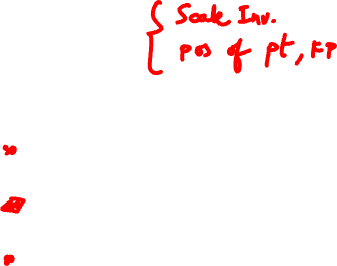 Scale Inv.
pos of pt, KP